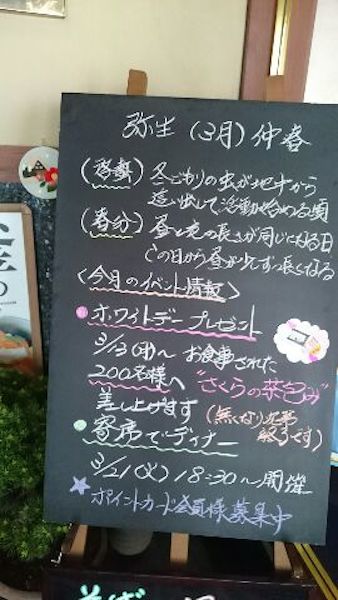 弥生(3月)仲春
(啓蟄) 冬ごもりの虫が地中から
這い出して活動始める頃
(春分) 昼と夜の長さが同じになる日
この日から昼が少しずつ長くなる
<今月のイベント情報>
ホワイトデープレゼント
3/13(月)〜 お食事された
200名様へ "さくらの茶包み"
差し上げます (無くなり次第
終了です)
寄席でディナー
3/21(火) 18:30〜開催
★ポイントカード会員様募集中